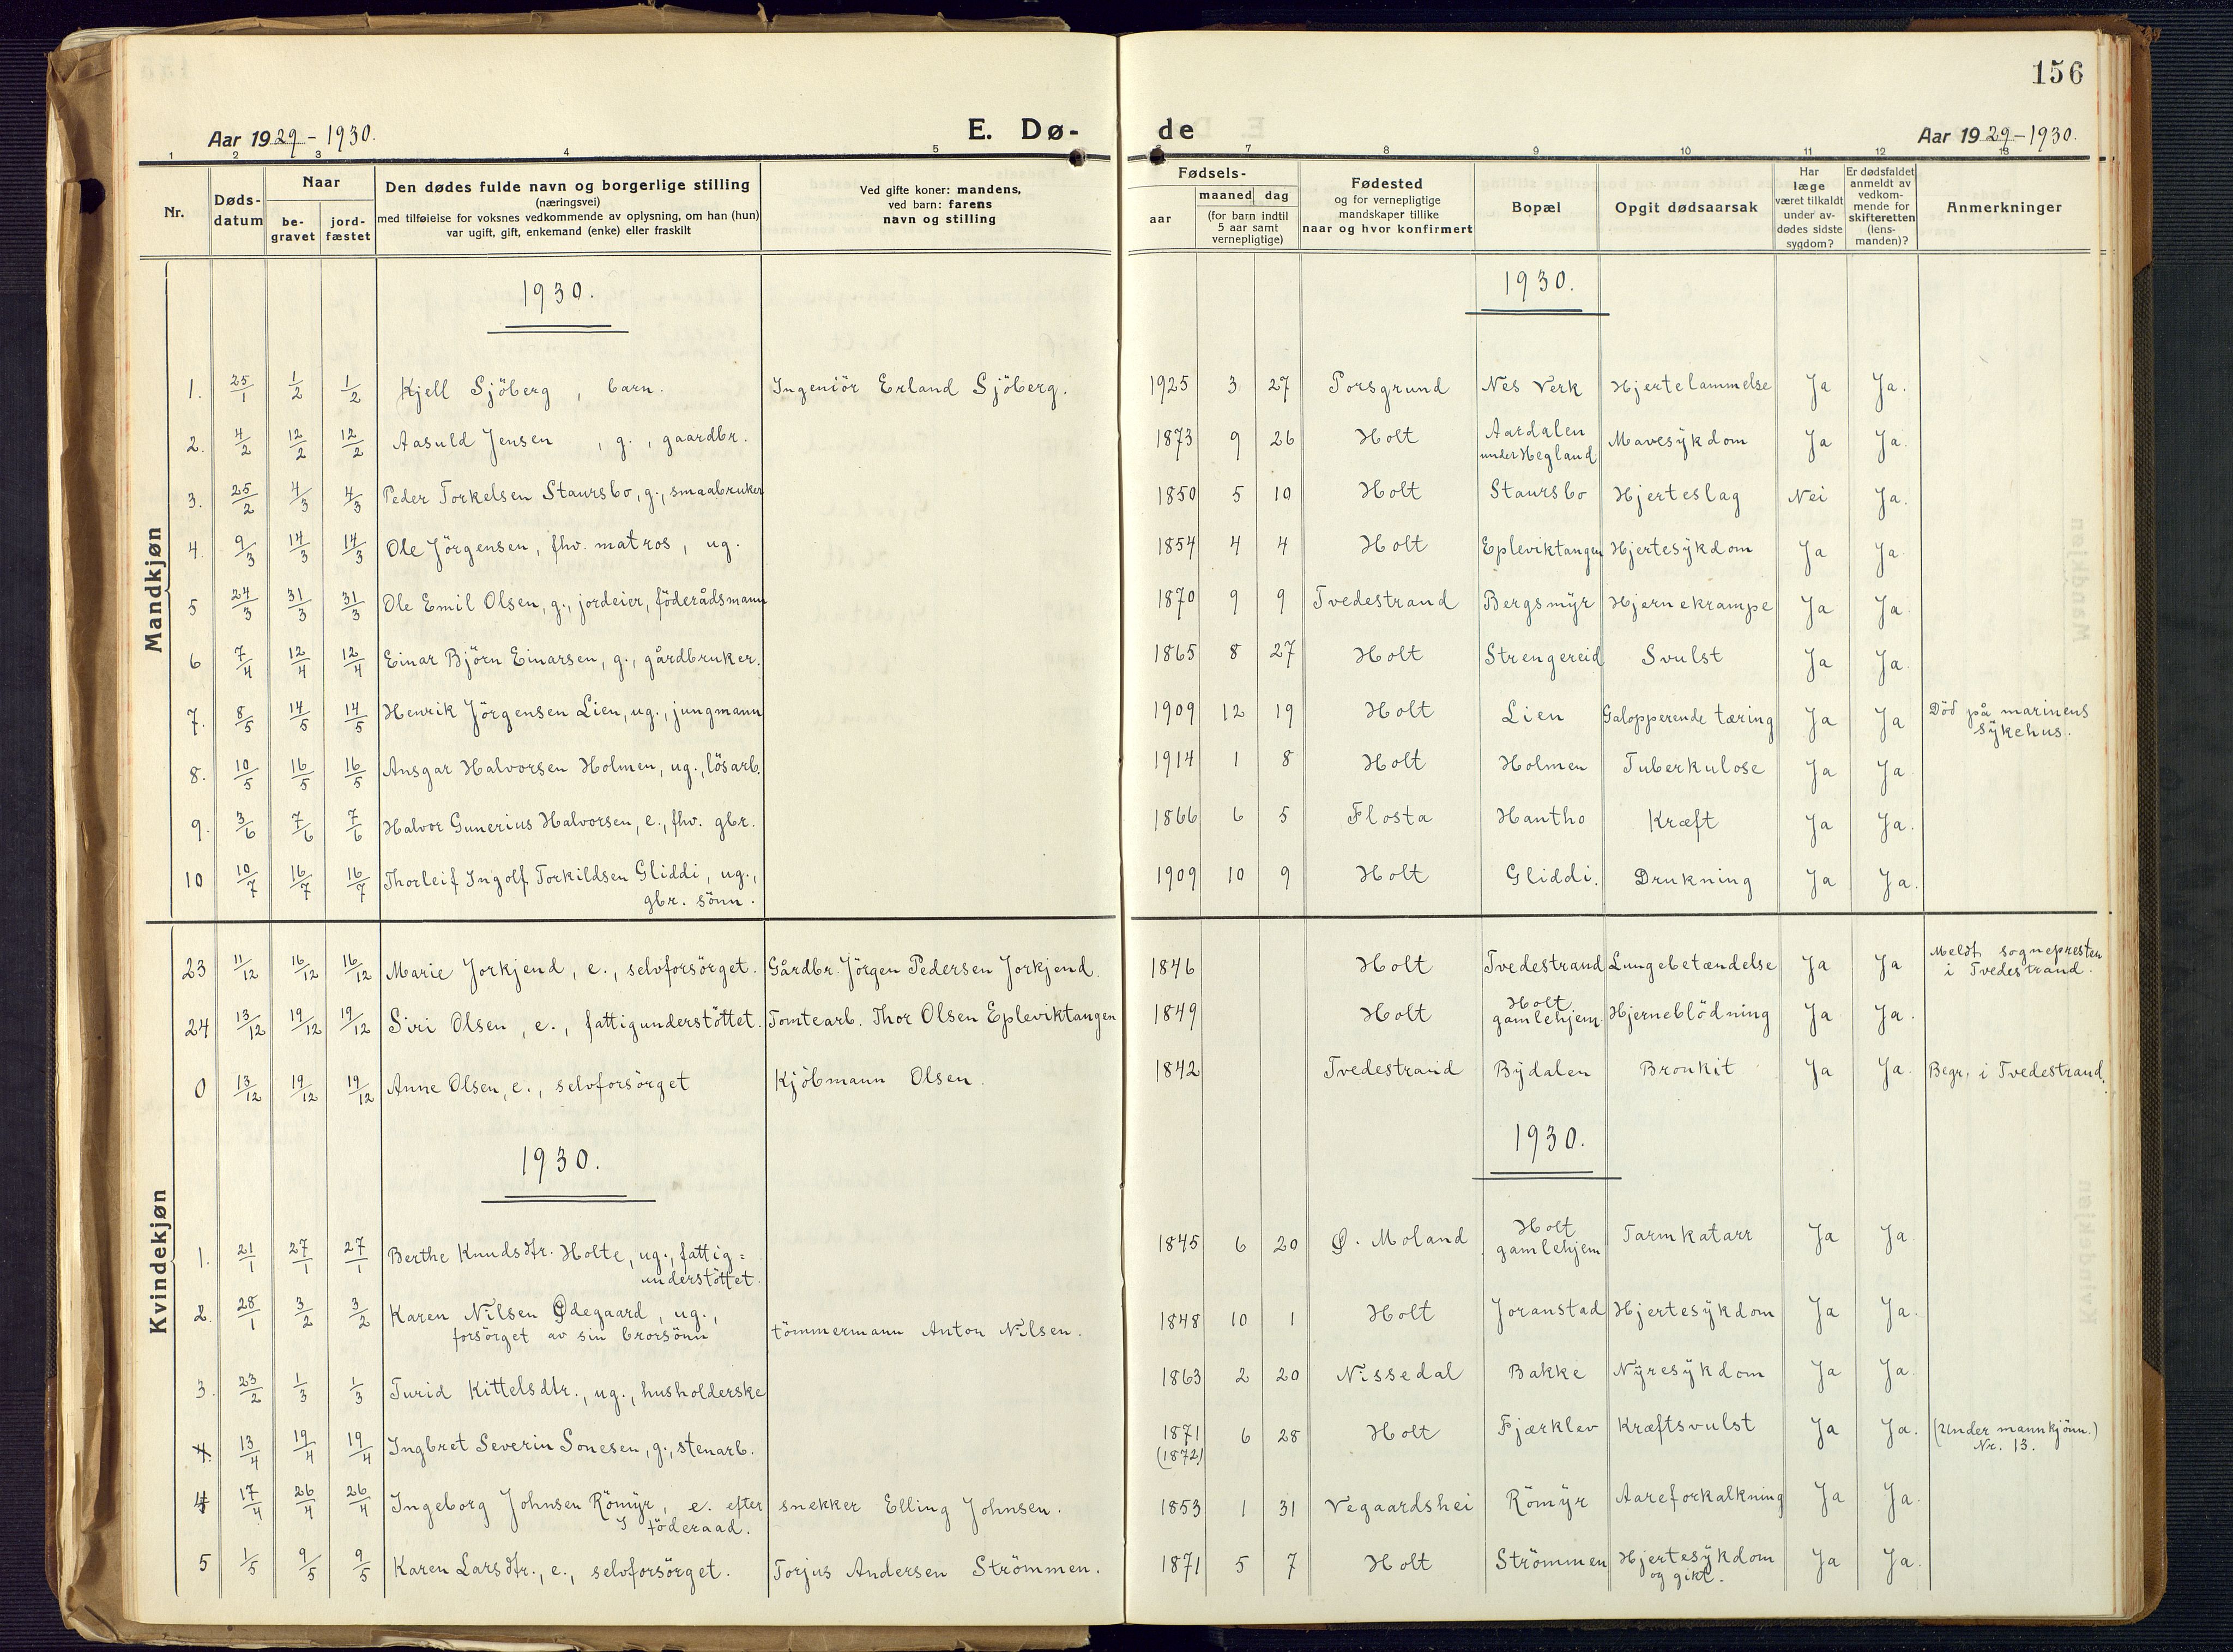 156
Aar 1929-1930.
E. Dø-
de
Aar 1929-1930.
1 2 3 4 5 6 7 8 9 10 11 12 13
Nr.
Døds-
datum
Naar
be-
gravet
jord-
fæstet
Den dødes fulde navn og borgerlige stilling
(næringsvei)
med tilføielse for voksnes vedkommende av oplysning, om han (hun)
var ugift, gift, enkemand (enke) eller fraskilt
Ved gifte koner: mandens,
ved barn: farens
navn og stilling
Fødsels-
aar
maaned dag
(for barn indtil
5 aar samt
vernepligtige)
Fødested
og for vernepligtige
mandskaper tillike
naar og hvor konfirmert
Bopæl
Opgit dødsaarsak
Har
læge
været tilkaldt
under av-
dødes sidste
sygdom?
Er dødsfaldet
anmeldt av
vedkom-
mende for
skifteretten
(lens-
manden)?
Anmerkninger
Mandkjøn
1930.
1930.
1. 25/1 1/2 1/2 Kjell Sjöberg, barn. Ingeniör Erland Sjöberg. 1925 3 27 Porsgrund Nes Verk Hjertelammelse Ja Ja.
2. 4/2 12/2 12/2 Aasuld Jensen, g., gaardbr. 1873 9 26 Holt Aardalen Mavesykdom Ja Ja.
under Hegland
3. 25/2 4/3 4/3 Peder Torkelsen Staursbo, g., smaabruker 1850 5 10 Holt Staursbo Hjerteslag Nei Ja.
4. 9/3 14/3 14/3 Ole Jörgensen, fhv. matros, ug. 1854 4 4 Holt Epleviktangen Hjertesykdom Ja Ja
5 24/3 31/3 31/3 Ole Emil Olsen, g., jordeier, föderådsmann 1870 9 9 Tvedestrand Bergsmyr Hjernekrampe Ja Ja
6 7/4 12/4 12/4 Einar Björn Einarsen, g., gårdbruker. 1865 8 27 Holt Strengereid Svulst Ja Ja.
7. 8/5 14/5 14/5 Henrik Jörgensen Lien, ug., jungmann 1909 12 19 Holt Lien Galopperende tæring Ja Ja Död på marinens
sykehus.
8. 10/5 16/5 16/5 Ansgar Halvorsen Holmen, ug., lösarb. 1914 1 8 Holt Holmen Tuberkulose Ja Ja
9. 3/6 7/6 7/6 Halvor Gunerius Halvorsen, e., fhv. gbr. 1866 6 5 Flosta Hantho Kræft Ja Ja.
10 10/7 16/7 16/7 Thorleif Ingolf Torkildsen Gliddi, ug., 1909 10 9 Holt Gliddi. Drukning Ja Ja.
gbr. sönn.
Kvindekjøn
23 11/12 16/12 16/12 Marie Jorkjend, e., selvforsörget. Gårdbr. Jörgen Pedersen Jorkjend. 1846 Holt Tvedestrand Lungebetændelse Ja Ja Meldt sognepresten
i Tvedestrand.
24 13/12 19/12 19/12 Siri Olsen, e., fattigunderstöttet. Tomtearb. Thor Olsen Epleviktangen 1849 Holt Holt
gamlehjem. Hjerneblödning Ja Ja.
0 13/12 19/12 19/12 Anne Olsen, e., selvforsörget Kjöbmann Olsen. 1842 Tvedestrand Bydalen Bronkit Ja Ja. Begr. i Tvedestrand.
1930.
1930.
1. 21/1 27/1 27/1 Berthe Knudsdtr. Holte, ug., fattig=
understöttet. 1845 6 20 Ø. Moland Holt
gamlehjem Tarmkatarr Ja Ja
2. 28/1 3/2 3/2 Karen Nilsen Ødegaard, ug.,
forsörget av sin brorsönn tömmermann Anton Nilsen. 1848 10 1 Holt Joranstad Hjertesykdom Ja Ja.
3. 23/2 1/3 1/3 Turid Kittelsdtr., ug., husholderske 1863 2 20 Nissedal Bakke Nyresykdom Ja Ja.
4. 13/4 19/4 19/4 Ingbret Severin Sonesen, g., stenarb. 1871 6 28 Holt Fjærklev Kræftsvulst Ja Ja. (Under mannkjönn.)
(1872) Nr. 13.
4 17/4 26/4 26/4 Ingeborg Johnsen Römyr, e. efter snekker Elling Johnsen. 1853 1 31 Vegaardshei Römyr Aareforkalkning Ja Ja.
föderaad.
5 1/5 9/5 9/5 Karen Larsdtr., e., selvforsörget. Torjus Andersen Strömmen. 1871 5 7 Holt Strömmen Hjertesykdom Ja Ja.
og gikt.